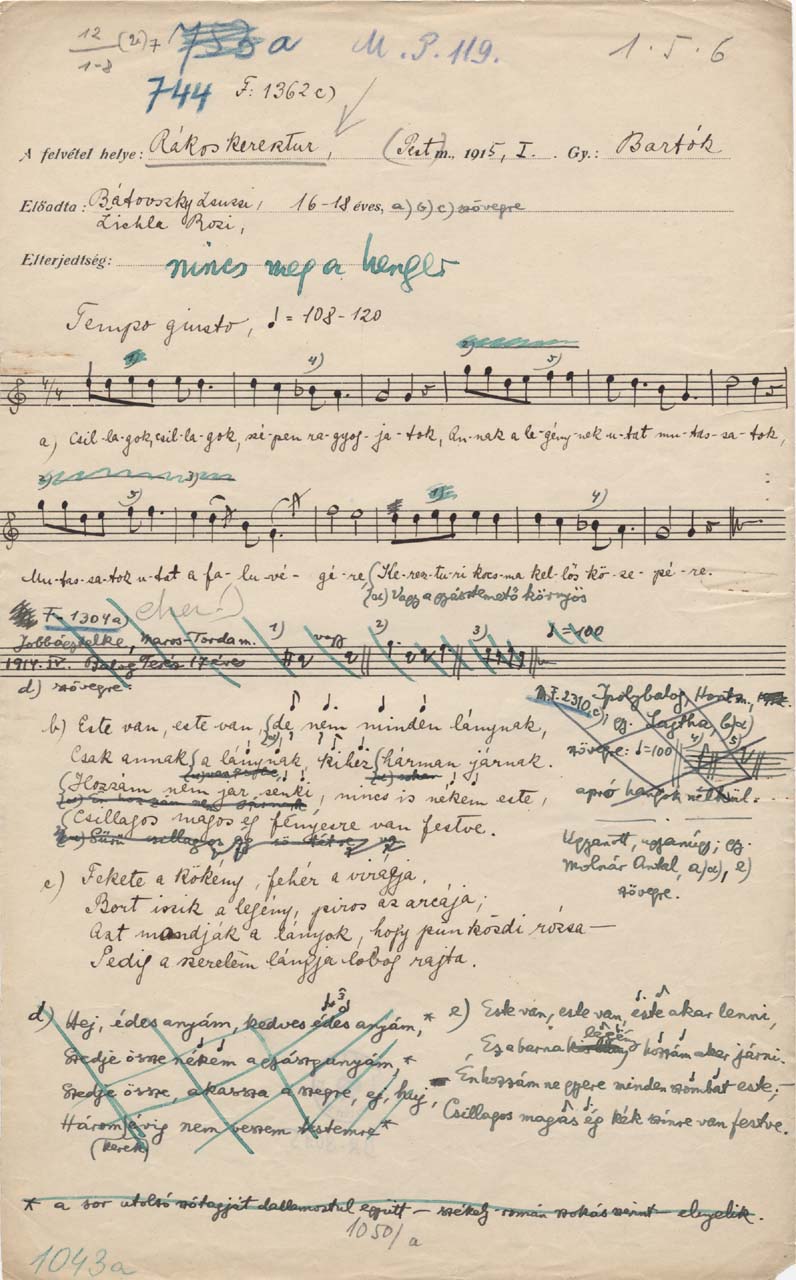 12/1-8 (2) 7 a M. P. 119. 1 · 5 · 6
744 F: 1362 c)
A felvétel helye: Rákoskeresztur, (Pest m., 1915, I. Gy.: Bartók
Előadta: Bátovszky Zsuzsi, 16-18 éves, a) b) c) szövegre
Zichla Rozi,
Elterjedtség: nincs meg a henger
Tempo giusto, ♩ = 108-120
a) Csil-la-gok, csil-la-gok, szé-pen ra-gyog-ja-tok, An-nak a le-gény-nek u-tat mu-tas-sa-tok,
Mu-tas-sa-tok u-tat a fa-lu-vé-gé-re, (Ke-resz-tu-ri kocs-ma kel-lős kö-ze-pé-re.
F. 1304 a)
Jobbágytelke, Maros-Torda m.
1914. IV. Balog Teréz 17 éves
d) szövegre.
1) vagy 2) 3) ♩ = 100
M.F. 2310 c) Ipolybalog, Hont m.,
gy. Lajtha, b)
szövegre: ♩ = 100 4) 5)
apró hangok nélkül.
Ugyanott, ugyanúgy; gy.
Molnár Antal, a) e)
szövegre.
b) Este van, este van, de nem minden lánynak,
Csak annak a lánynak, kihez hárman járnak.
Hozzám nem jár senki, nincs is nékem este,
Csillagos magos ég fényesre van festve.
c) Fekete a kökény, fehér a virágja,
Bort iszik a legény, piros az arcája;
Azt mondják a lányok, hogy pünkösdi rózsa —
Pedig a szerelem lángja lobog rajta.
d) Hej, édes anyám, kedves édes anyám,*
Szedje össze nékem a gyászgunyám,*
Szedje össze, akassza a szegre, ej, haj,
Három évig nem veszem testemre*
(kerek)
e) Este van, este van, este akar lenni,
Ez a barna legény hozzám akar járni.
Én hozzám ne gyere minden szombat este; —
Csillagos magas ég kék színre van festve.
* a sor utolsó szótagját dallamostul együtt — székely-román szokás szerint — elnyelik.
1050/a
1043a